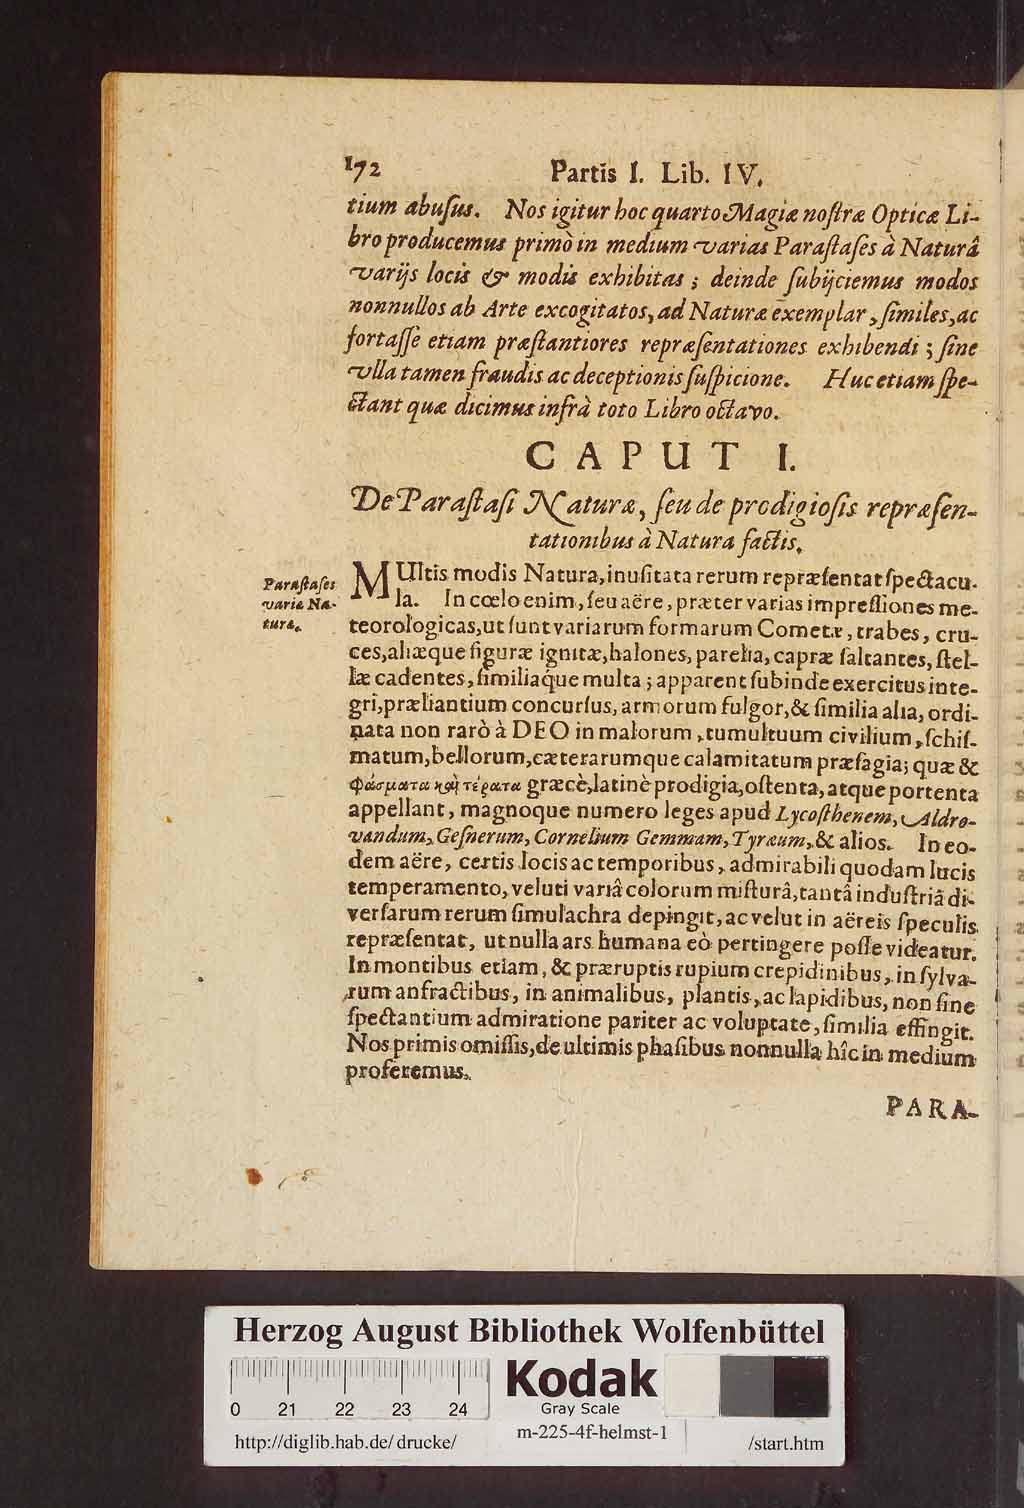 172 Partis I. Lib. IV.
tium abuſus. Nos igitur hoc quarto Magiæ noſtræ Opticæ Li-
bro producemus primò in medium varias Paraſtaſes à Naturâ
varijs locis & modis exhibitas; deinde ſubijciemus modos
nonnullos ab Arte excogitatos, ad Naturæ exemplar, ſimiles, ac
fortaſſe etiam præſtantiores repræſentationes exhibendi; ſine
vlla tamen fraudis ac deceptionis ſuſpicione. Huc etiam ſpe-
ctant quæ dicimus infrà toto Libro octavo.
CAPUT I.
De Paraſtaſi Naturæ, ſeu de prodigioſis repræſen-
tationibus à Natura factis.
Paraſtaſes
variæ Na-
turæ.
MUltis modis Natura, inuſitata rerum repræſentat ſpectacu-
la. In cœlo enim, ſeu aëre, præter varias impreſſiones me-
teorologicas, ut ſunt variarum formarum Cometæ, trabes, cru-
ces, aliæque figuræ ignitæ, halones, parelia, capræ ſaltantes, ſtel-
læ cadentes, ſimiliaque multa; apparent ſubinde exercitus inte-
gri, præliantium concurſus, armorum fulgor, & ſimilia alia, ordi-
nata non rarò à DEO in malorum, tumultuum civilium, ſchiſ-
matum, bellorum, cæterarumque calamitatum præſagia; quæ &
φάσματα καὶ τέρατα græcè, latinè prodigia, oſtenta, atque portenta
appellant, magnoque numero leges apud Lycoſthenem, Aldro-
vandum, Geſnerum, Cornelium Gemmam, Tyræum, & alios. In eo-
dem aëre, certis locis ac temporibus, admirabili quodam lucis
temperamento, veluti variâ colorum miſturâ, tantâ induſtriâ di-
verſarum rerum ſimulachra depingit, ac velut in aëreis ſpeculis
repræſentat, ut nulla ars humana eò pertingere poſſe videatur.
In montibus etiam, & præruptis rupium crepidinibus, in ſylva-
rum anfractibus, in animalibus, plantis, ac lapidibus, non ſine
ſpectantium admiratione pariter ac voluptate, ſimilia effingit.
Nos primis omiſſis, de ultimis phaſibus nonnulla hîc in medium
proferemus.
PARA-
Herzog August Bibliothek Wolfenbüttel
0 21 22 23 24
Kodak
Gray Scale
http://diglib.hab.de/drucke/ m-225-4f-helmst-1 /start.htm